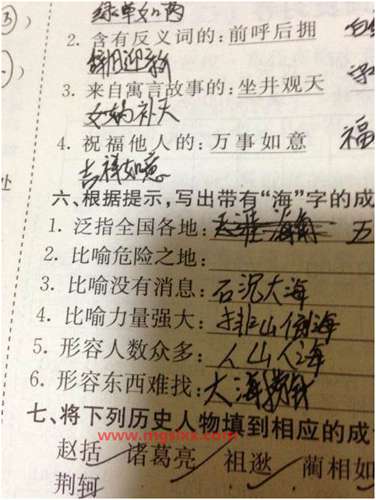 绿草如茵
2. 含有反义词的:前呼后拥
辞旧迎新
3. 来自寓言故事的:坐井观天
女娲补天
4. 祝福他人的:万事如意 福
吉祥如意
处
六、根据提示,写出带有“海”字的成
1. 泛指全国各地:天涯海角 五
2. 比喻危险之地:
3. 比喻没有消息:石沉大海
4. 比喻力量强大:排山倒海
5. 形容人数众多:人山人海
6. 形容东西难找:大海捞针
www.mgslxx.com
七、将下列历史人物填到相应的成
赵括 诸葛亮 祖逖 蔺相如
荆轲